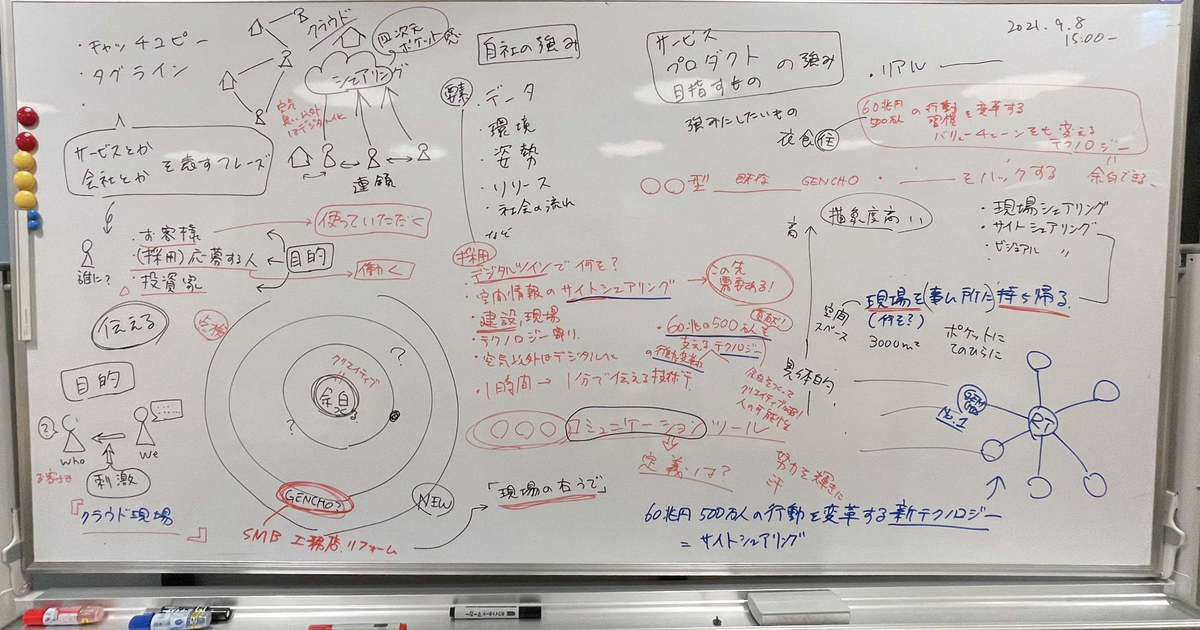 ・キャッチコピー
・タグライン
・
サービスとか
会社とか
を表すフレーズ
クラウド
シェアリング
四次元
ポケット
空気
以外
はデジタル化
連領
誰に?
・お客様
・(採用)応募する人
・投資家
目的
使っていただく
働く
伝える
目的
who
we
お客さま
刺激
『クラウド現場』
クリエイティブ
余白
?
?
GENCHO?
NEW
SMB 工務店.リフォーム
「現場の右うで」
自社の強み
要素
・データ
・環境
・姿勢
・リリース
・社会の流れ
など
採用
デジタルツインで何を?
・空間情報のサイトシェアリング
この先
需要ある!
・建設,現場
・テクノロジー寄り
・空気以外はデジタル化
・1時間→1分で伝える技術で
・60兆の500万人を
支えるテクノロジー
の行動変革
貢献!
余白をつくって
クリエイティブ
人の可能性を
○○○コミュニケーションツール
定義は?
努力を輝きに
汗
サービス
プロダクト の強み
目指すもの
強みにしたいもの
衣食住
2021.9.8
15:00-
・リアル
60兆円
500万人の
行動
習慣
を変革する
バリューチェーンをも変える
テクノロジー
余白できる
○○型 既存 GENCHO ・ をバックする
高
抽象度高い
・現場シェアリング
・サイトシェアリング
・ビジュアル 〃
現場を(事ム所に)持ち帰る
(何を?)
空間
スペース
3000m²
ポケットに
てのひらに
具体的
GENCHO
No.1
RT
60兆円 500万人の行動を変革する新テクノロジー
= サイトシェアリング